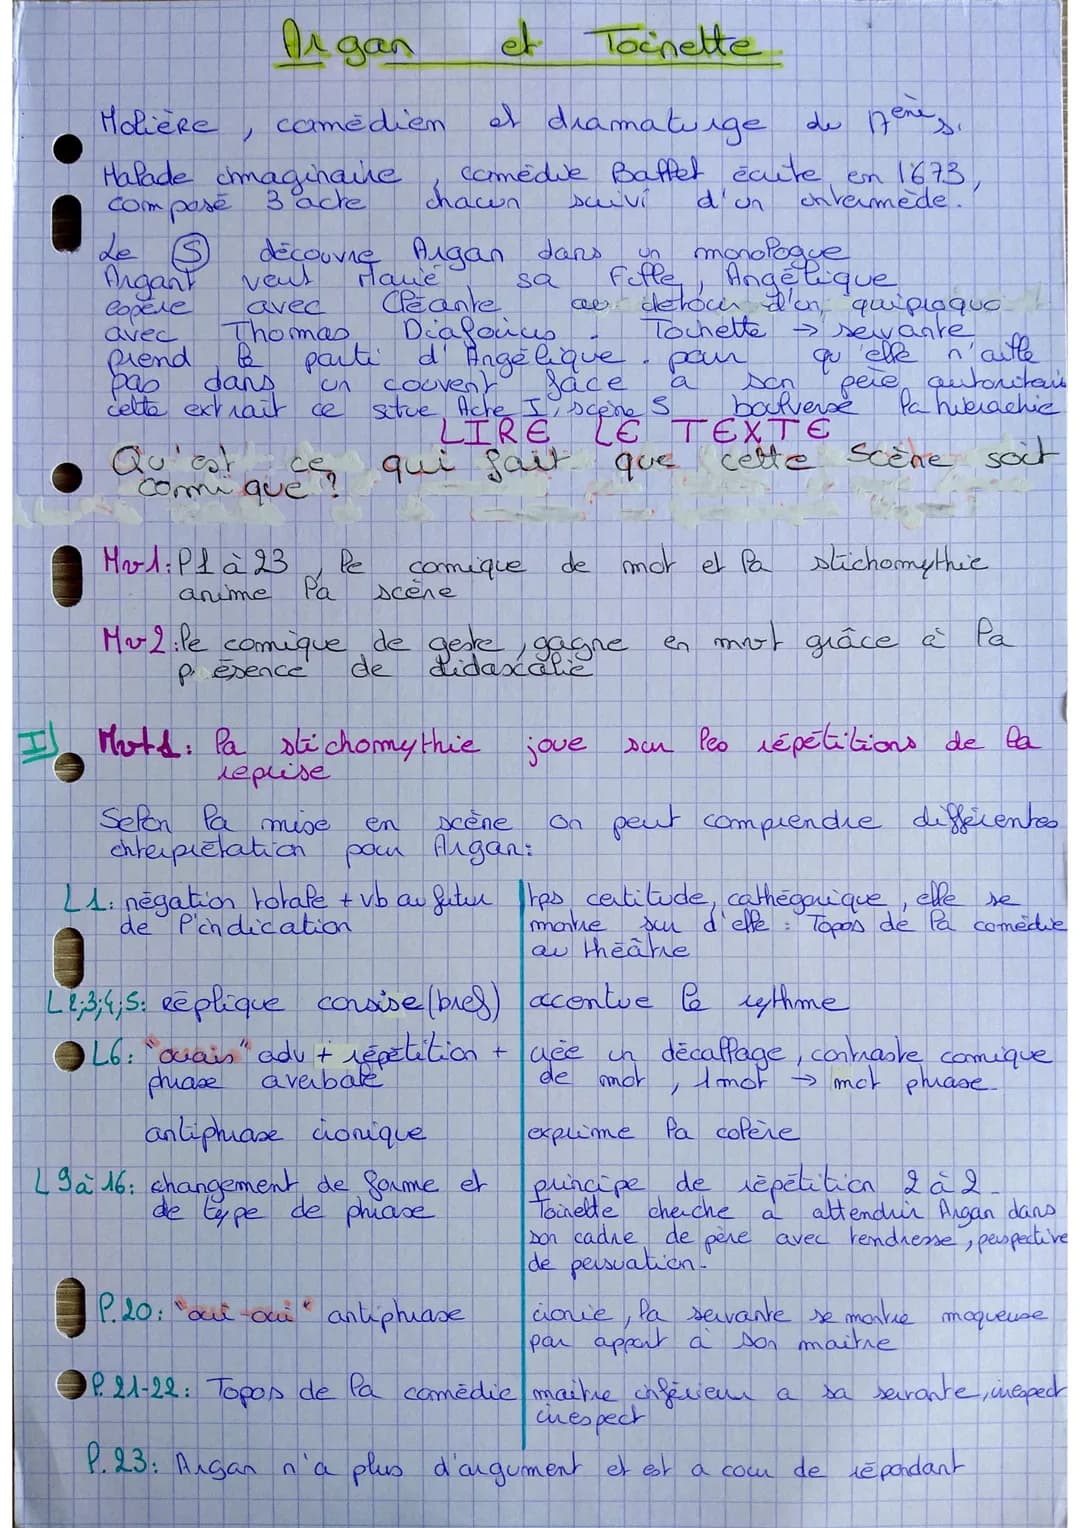 Argan et Toinette
Molière, comédien et dramaturge du 17ème s.
Malade imaginaire, comédie Ballet écrite en 1673,
composé 3 acte chacun suivi d'un intermède.
Le Ⓢ découvre Argan dans un monologue
Argant veut Marié sa fille, Angélique
espère avec Cléante au detour d'un quiproquo
avec Thomas Diafoirus. Toinette → servante
prend le parti d'Angélique. pour qu'elle n'aille
pas dans un couvent face a son père autoritair
cette extrait ce situe Acte I, scène 5 boulverse la hierachie
LIRE LE TEXTE
Qu'est ce qui fait que cette scène soit
comique ?
Mv1: l1 à 23, le comique de mot et la stichomythie
anime la scène
Mv2: le comique de geste, gagne en mvt grâce à la
présence de didascalie
I) Mvt1: la stichomythie joue sur les répétitions de la
reprise
Selon la mise en scène on peut comprendre différentes
interprétation pour Argan:
L1: négation totale + vb au futur de l'indication | tps certitude, cathégorique, elle se
montre sur d'elle : Topos de la comédie
au théâtre
L2;3;4;5: réplique consise (bref) | accentue le rythme
L6: "ouais" adv + répétition + | crée un décallage, contraste comique
phrase averbale | de mot, 1 mot → mot phrase.
antiphrase ironique | exprime la colère
L9 à 16: changement de forme et | principe de répétition 2 à 2.
de type de phrase | Toinette cherche a attendrir Argan dans
son cadre de père avec tendresse, perspective
de persuation.
l.20: "oui-oui" antiphrase | ironie, la servante se montre moqueuse
par apport à son maitre
l.21-22: Topos de la comédie | maitre inférieur a sa servante, irrespect
irrespect
l.23: Argan n'a plus d'argument et est a cour de répondant